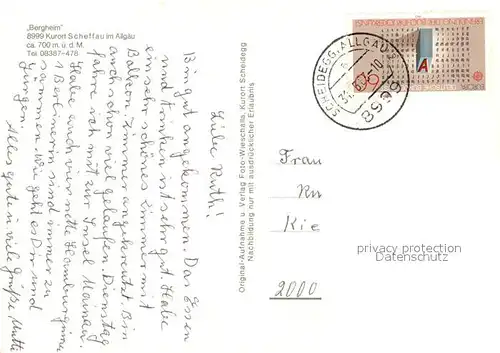 "Bergheim"
8999 Kurort Scheffau im Allgäu
ca. 700 m. ü. d. M.
Tel. 08387-478
Liebe Ruth!
Bin gut angekommen. Das Essen
und trinken ist sehr gut. Habe
ein sehr schönes Zimmer mit
Balkon Zimmer angekreutzt. Bin
auch schon viel gelaufen. Dienstag
fahre ich mit zur Insel Mainau.
Habe auch vier nette Hamburginnen
1 Berlinerin sind immer zu
sammen. Wie geht es Dir und
Jungen.
Alles gute u viele Grüße Mutti
Original-Aufnahme u. Verlag Foto-Wieschalla, Kurort Scheidegg
Nachbildung nur mit ausdrücklicher Erlaubnis
SCHEIDEGG, ALLGÄU
8999
DEUTSCHE BUNDESPOST
EUROPA
A
Frau
Ru
Kie
2000
privacy protection
Datenschutz